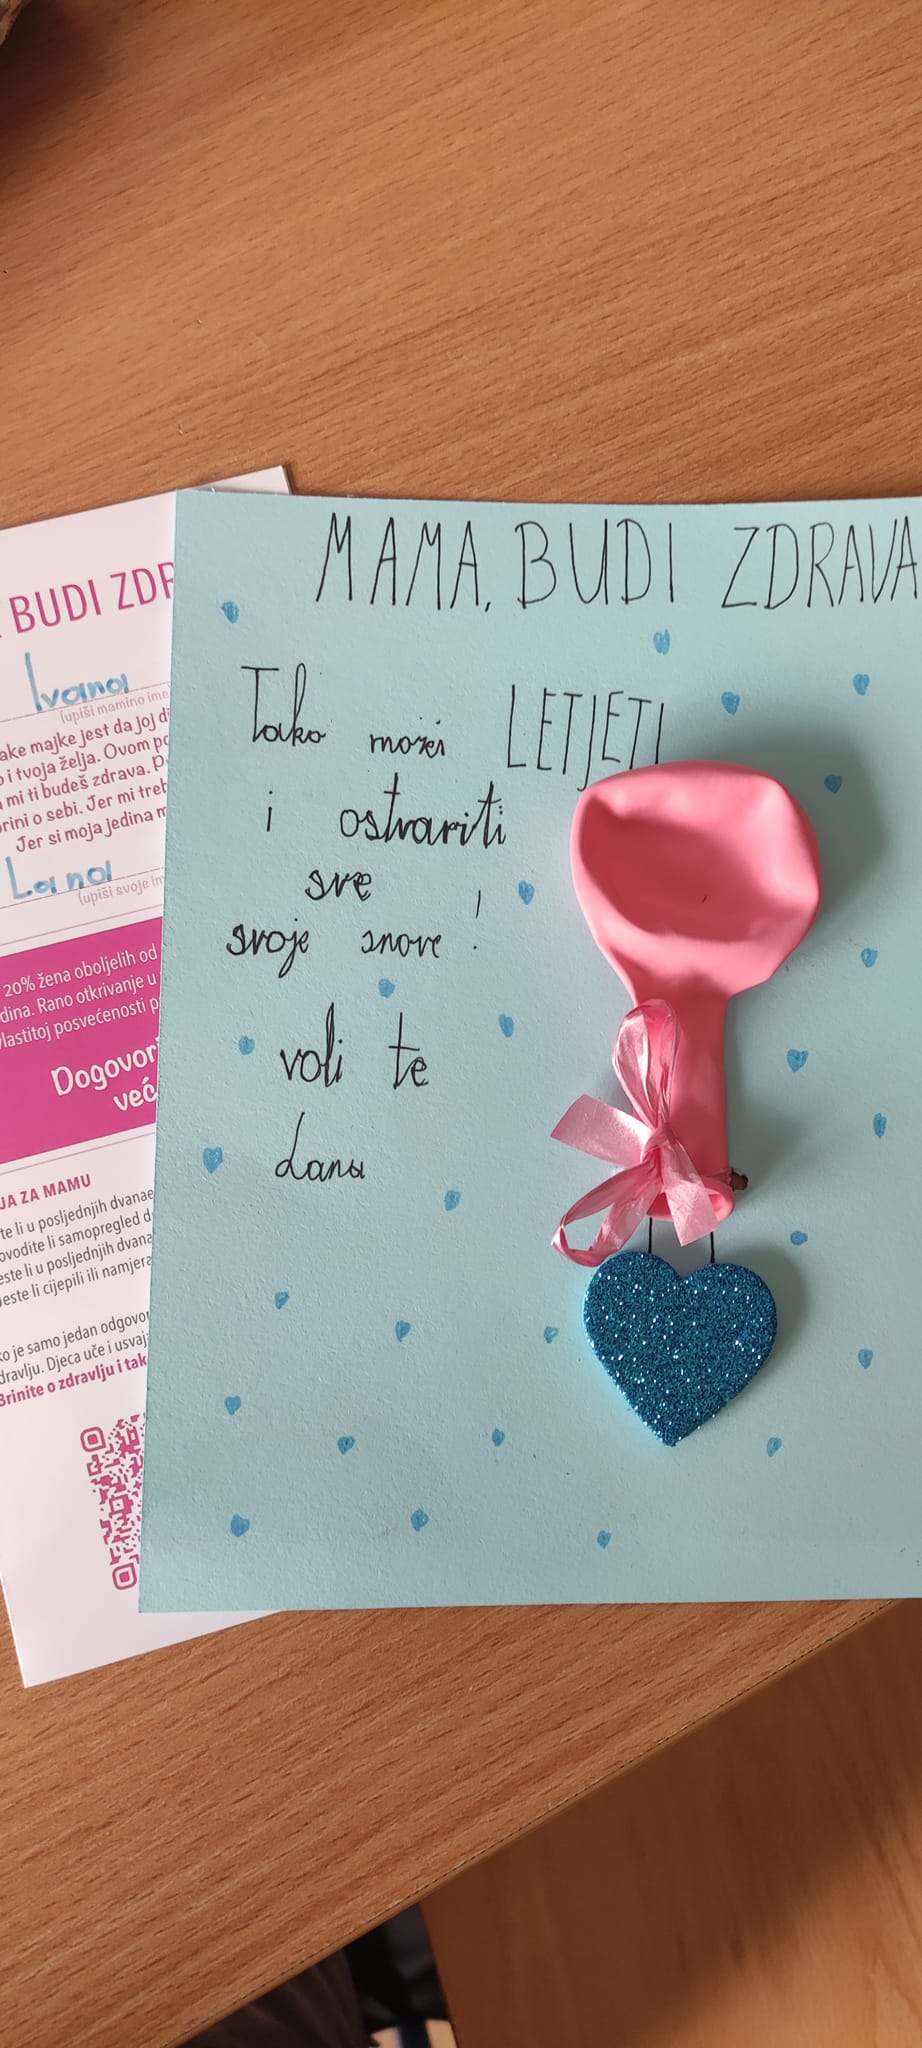 MAMA, BUDI ZDRAVA
Tako možeš LETJETI
i ostvariti
sve
svoje snove!
voli te
Lana
BUDI ZDR
Ivana
(upiši mamino ime
ake majke jest da joj d
o i tvoja želja. Ovom po
mi ti budeš zdrava. P
rini o sebi. Jer mi treb
Jer si moja jedina m
Lana
(upiši svoje im
20% žena oboljelih od
dina. Rano otkrivanje u
vlastitoj posvećenosti p
Dogovori
već
JA ZA MAMU
te li u posljednjih dvanae
ovodite li samopregled d
este li u posljednjih dvana
Jeste li cijepili ili namjera
ko je samo jedan odgovor
dravlju. Djeca uče i usvaj
Brinite o zdravlju i tak